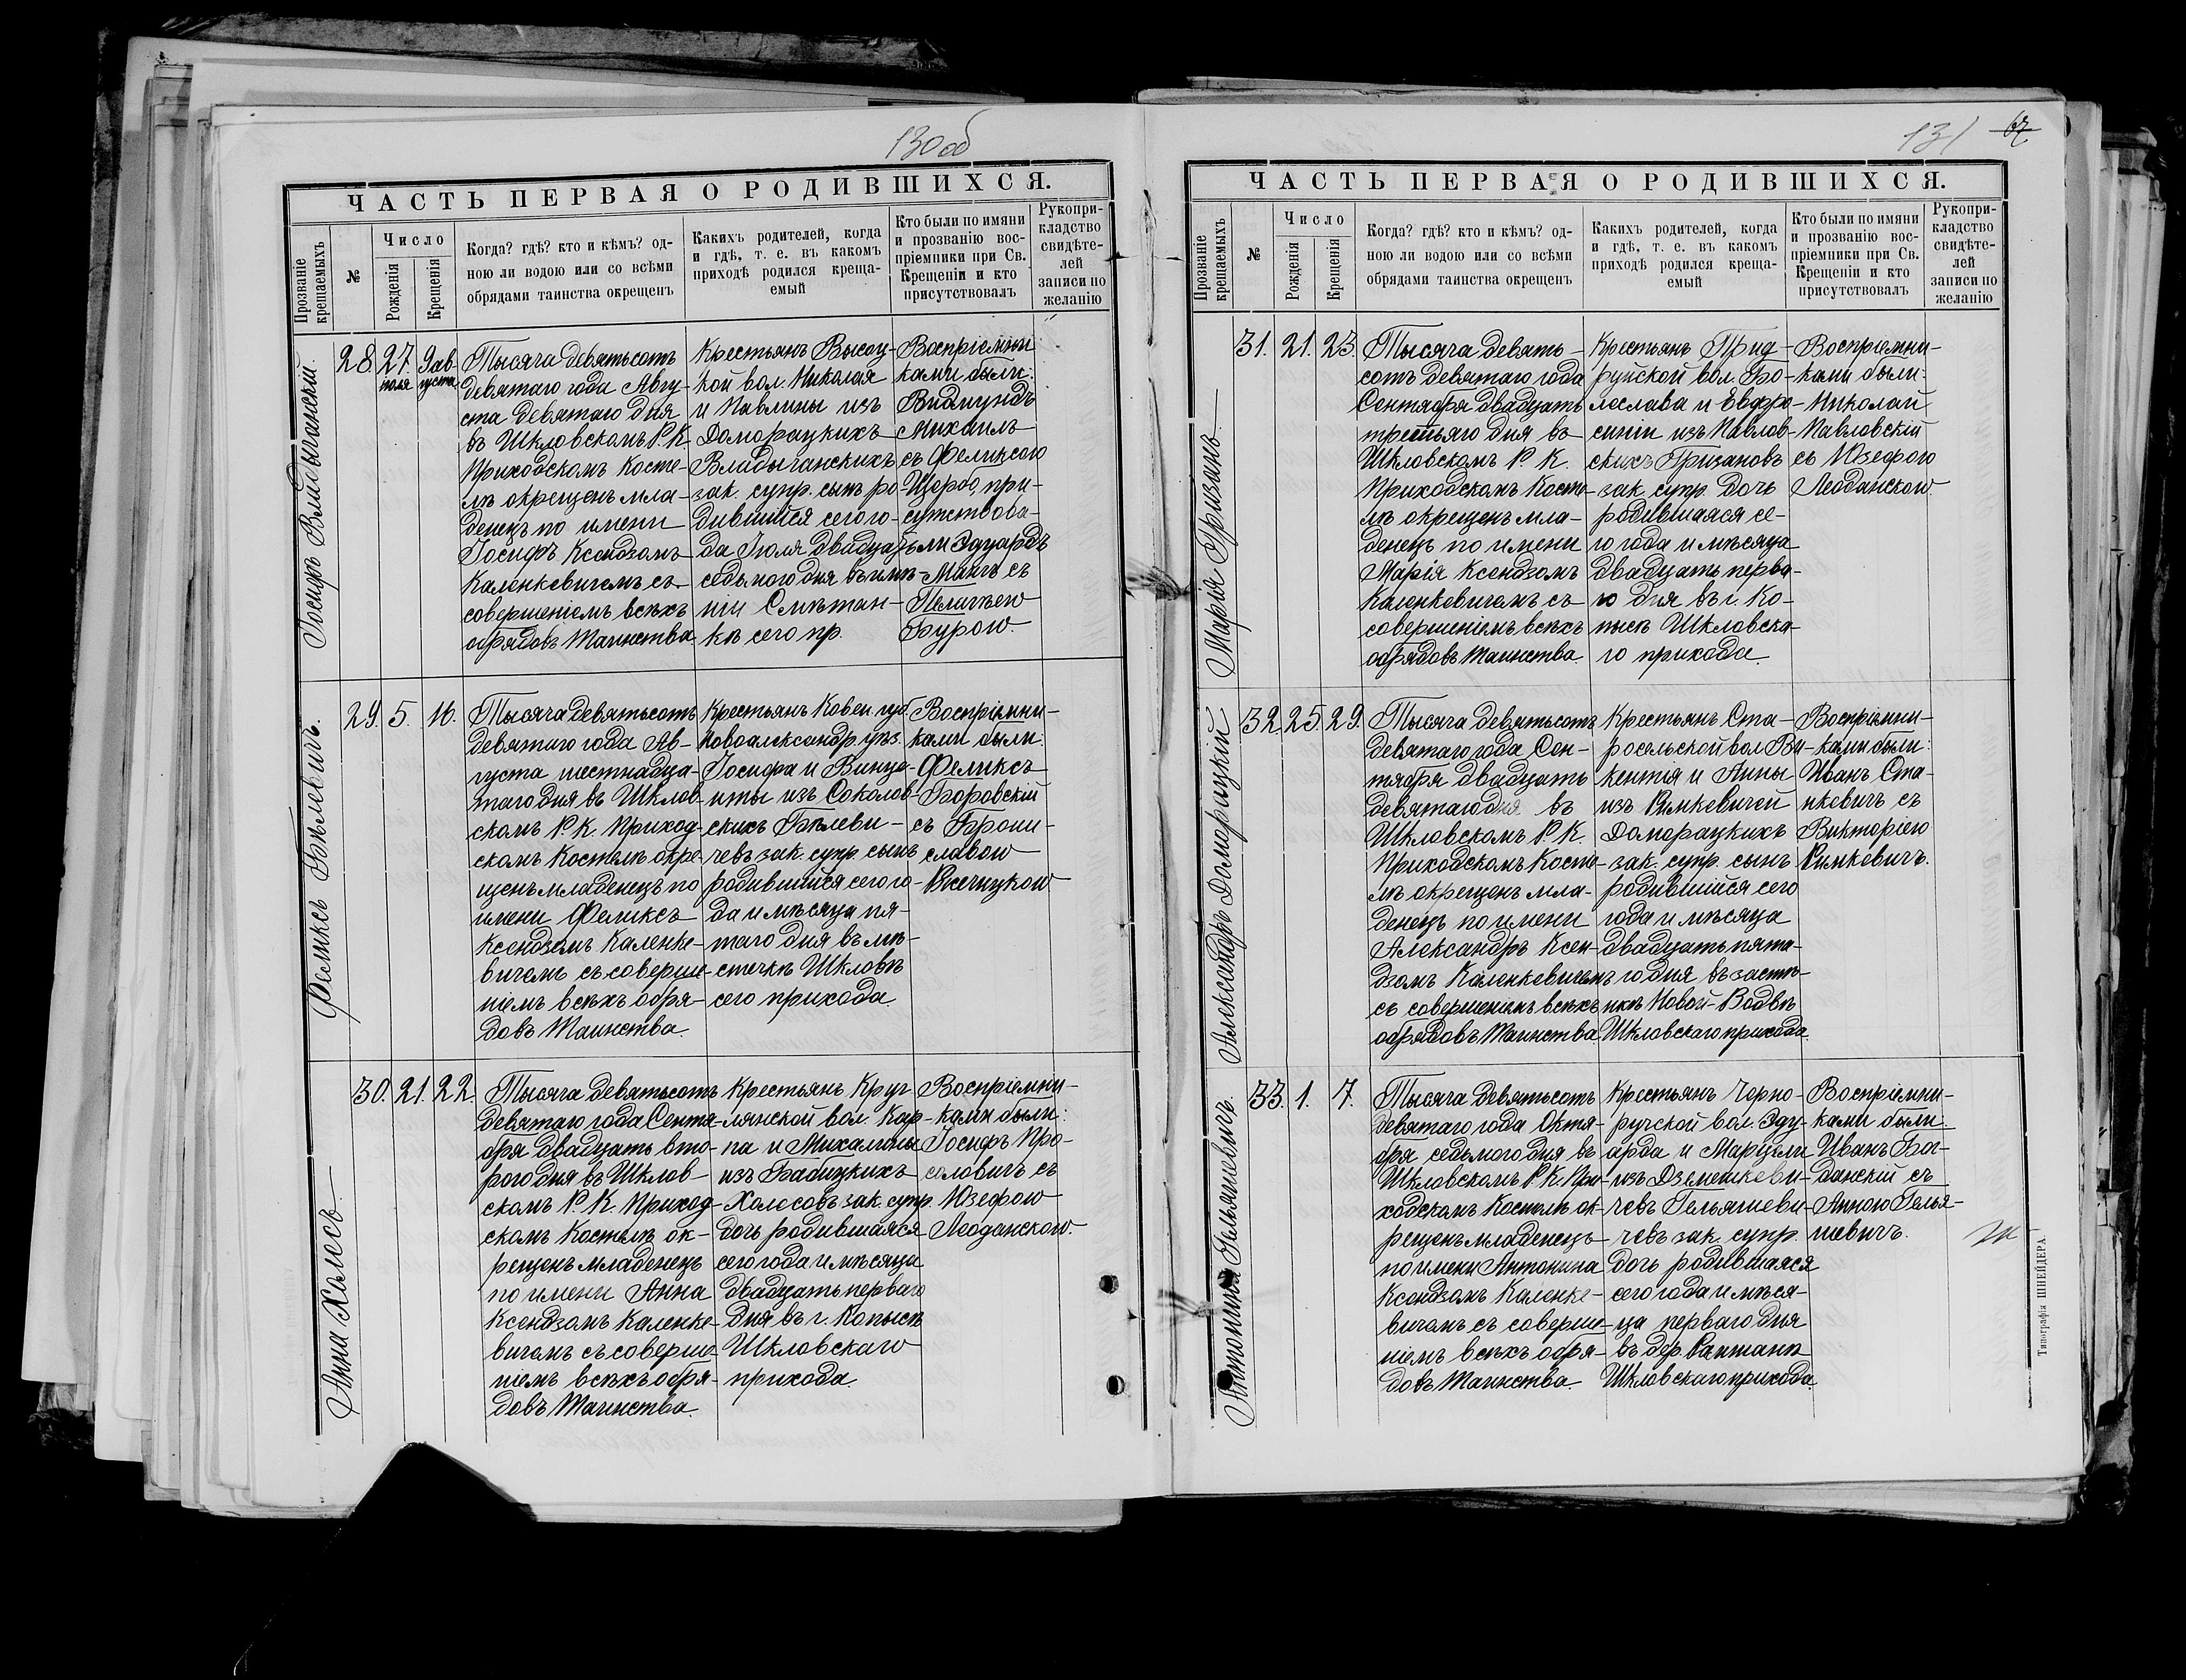 130 об
ЧАСТЬ ПЕРВАЯ О РОДИВШИХСЯ.
Прозваніе крещаемыхъ
№
Число
Рожденія
Крещенія
Когда? гдѣ? кто и кѣмъ? од-
ною ли водою или со всѣми
обрядами таинства окрещенъ
Какихъ родителей, когда
и гдѣ, т. е. въ какомъ
приходѣ родился креща-
емый
Кто были по имяни
и прозванію вос-
пріемники при Св.
Крещеніи и кто
присутствовалъ
Рукопри-
кладство
свидѣте-
лей
записи по
желанію
Іосифъ Владычанскій
28.
27.
іюля
9 ав
густа
Тысяча девятьсотъ
девятаго года Авгу-
ста девятаго дня
въ Шкловскомъ Р. К.
Приходскомъ Косте-
лѣ окрещенъ мла-
денецъ по имени
Іосифъ Ксендзомъ
Каленкевичемъ съ
совершеніемъ всѣхъ
обрядовъ Таинства.
Крестьянъ Высоц-
кой вол. Николая
и Павлины изъ
Доморацкихъ
Владычанскихъ
зак. супр. сынъ ро-
дившійся сего го-
да Іюля двадцать
седьмого дня въ имѣ-
ніи Смѣтан-
кѣ сего пр.
Воспріемни
ками были:
Видмундъ
Михаилъ
съ Феликсою
Щербо, при-
сутствова-
ли Эдуардъ
съ
Бурою.
Феликсъ Бѣлевичъ.
29.
5.
16.
Тысяча девятьсотъ
девятаго года Ав-
густа шестнадца-
таго дня въ Шклов-
скомъ Р. К. Приход-
скомъ Костелѣ окре-
щенъ младенецъ по
имени Феликсъ
Ксендзомъ Каленке-
вичемъ съ соверше-
ніемъ всѣхъ обря-
довъ Таинства.
Крестьянъ Ковен. губ.
Новоалександр. уѣз.
Іосифа и Винце-
нты изъ Соколов-
скихъ Бѣлеви-
чевъ зак. супр. сынъ
родившійся сего го-
да и мѣсяца пя-
таго дня въ мѣ-
стечкѣ Шкловѣ
сего прихода
Воспріемни-
ками были:
Феликсъ
Боровскій
съ Брони-
славою
Анна Холесъ
30.
21.
22.
Тысяча девятьсотъ
девятаго года Сентя-
бря двадцать вто-
рого дня въ Шклов-
скомъ Р. К. Приход-
скомъ Костелѣ ок-
рещенъ младенецъ
по имени Анна
Ксендзомъ Каленке-
вичемъ съ соверше-
ніемъ всѣхъ обря-
довъ Таинства.
Крестьянъ Круг-
лянской вол. Кар-
па и Михалины
изъ Бабицкихъ
Холесовъ зак. супр.
дочь родившаяся
сего года и мѣсяца
двадцать перваго
дня въ г. Копысѣ
Шкловскаго
прихода.
Воспріемни-
ками были:
Іосифъ Про-
селовичъ съ
Юзефою
Леоданскою.
131
67
ЧАСТЬ ПЕРВАЯ О РОДИВШИХСЯ.
Прозваніе крещаемыхъ
№
Число
Рожденія
Крещенія
Когда? гдѣ? кто и кѣмъ? од-
ною ли водою или со всѣми
обрядами таинства окрещенъ
Какихъ родителей, когда
и гдѣ, т. е. въ какомъ
приходѣ родился креща-
емый
Кто были по имяни
и прозванію вос-
пріемники при Св.
Крещеніи и кто
присутствовалъ
Рукопри-
кладство
свидѣте-
лей
записи по
желанію
Марія Гризанъ
31.
21.
23.
Тысяча девять-
сотъ девятаго года
Сентября двадцать
третьяго дня въ
Шкловскомъ Р. К.
Приходскомъ Косте-
лѣ окрещенъ мла-
денецъ по имени
Марія Ксендзомъ
Каленкевичемъ съ
совершеніемъ всѣхъ
обрядовъ Таинства.
Крестьянъ Прид-
руйской вол. Бо-
леслава и Евфро-
синіи изъ Павлов-
скихъ Гризановъ
зак. супр. дочь
родившаяся се-
го года и мѣсяца
двадцать перва-
го дня въ г. Ко-
пысѣ Шкловска-
го прихода.
Воспріемни-
ками были:
Николай
Павловскій
съ Юзефою
Леоданскою.
Александръ Доморацкій
32.
25.
29.
Тысяча девятьсотъ
девятаго года Сен-
тября двадцать
девятаго дня въ
Шкловскомъ Р. К.
Приходскомъ Косте-
лѣ окрещенъ мла-
денецъ по имени
Александръ Ксен-
дзомъ Каленкевичемъ
съ совершеніемъ всѣхъ
обрядовъ Таинства.
Крестьянъ Ста-
росельской вол. Ви-
кентія и Анны
изъ Римкевичей
Доморацкихъ
зак. супр. сынъ
родившійся сего
года и мѣсяца
двадцать пята-
го дня въ застѣ-
нкѣ Новой-Водвѣ
Шкловскаго прихода.
Воспріемни-
ками были:
Иванъ Ста-
нкевичъ съ
Викторіею
Римкевичъ.
Антонина Гельяшевичъ.
33.
1.
7.
Тысяча девятьсотъ
девятаго года Октя-
бря седьмого дня въ
Шкловскомъ Р. К. При-
ходскомъ Костелѣ ок-
рещенъ младенецъ
по имени Антонина
Ксендзомъ Каленке-
вичемъ съ соверше-
ніемъ всѣхъ обря-
довъ Таинства.
Крестьянъ Черно-
ручской вол. Эду-
арда и Марцели
изъ Дземешкеви-
чевъ Гельяшеви-
чевъ зак. супр.
дочь родившаяся
сего года и мѣся-
ца перваго дня
въ дер. Рантанѣ
Шкловскаго прихода.
Воспріемни-
ками были:
Иванъ Бог-
данскій съ
Анною Гелья-
шевичъ.
Типографія ШНЕЙДЕРА.